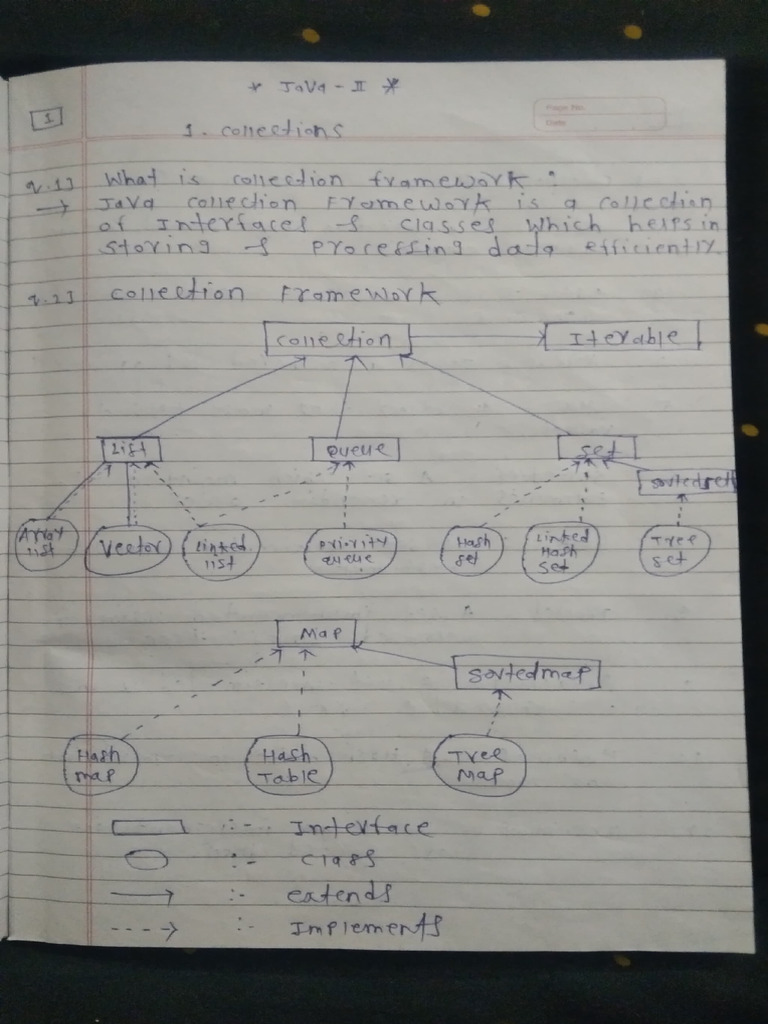 * Java - II *
1
Page No.
Date
1. Collections
Q.1] What is collection framework :
→ Java Collection Framework is a collection
of Interfaces & classes which helps in
storing & processing data efficiently
Q.2] Collection Framework
Collection Iterable
List Queue Set
Sortedset
Array
List
Vector
Linked
list
Priority
Queue
Hash
set
Linked
Hash
Set
Tree
set
Map
Sortedmap
Hash
map
Hash
Table
Tree
Map
:- Interface
:- Class
→ :- extends
----> :- Implements